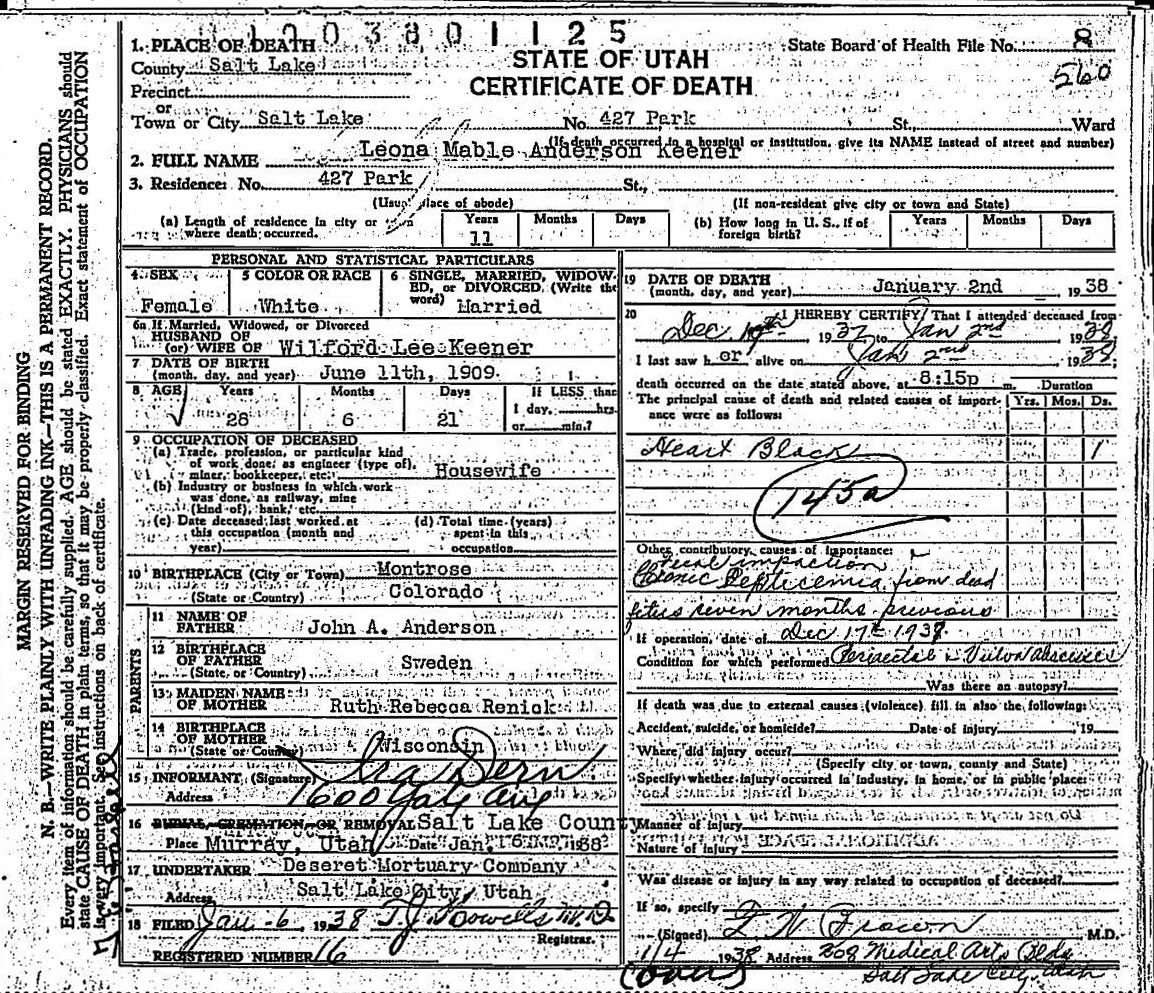 1 0 0 3 8 0 1 1 2 5
State Board of Health File No. 8
560
STATE OF UTAH
CERTIFICATE OF DEATH
1. PLACE OF DEATH
County Salt Lake
Precinct
or
Town or City Salt Lake No. 427 Park St., Ward
(If death occurred in a hospital or institution, give its NAME instead of street and number)
2. FULL NAME Leona Mable Anderson Keener
3. Residence: No. 427 Park St.,
(Usual place of abode) (If non-resident give city or town and State)
(a) Length of residence in city or town where death occurred. Years 11 Months Days
(b) How long in U. S., if of foreign birth? Years Months Days
PERSONAL AND STATISTICAL PARTICULARS
4. SEX Female
5 COLOR OR RACE White
6 SINGLE, MARRIED, WIDOWED, or DIVORCED. (Write the word) Married
6a If Married, Widowed, or Divorced
HUSBAND OF
(or) WIFE OF Wilford Lee Keener
7 DATE OF BIRTH
(month, day, and year) June 11th, 1909
8 AGE Years 28 Months 6 Days 21
If LESS than
1 day, hrs.
or min.?
9 OCCUPATION OF DECEASED
(a) Trade, profession, or particular kind
of work done; as engineer (type of),
miner, bookkeeper, etc. Housewife
(b) Industry or business in which work
was done, as railway, mine
(kind of), bank, etc.
(c) Date deceased last worked at
this occupation (month and
year)
(d) Total time (years)
spent in this
occupation
10 BIRTHPLACE (City or Town) Montrose
(State or Country) Colorado
PARENTS
11 NAME OF
FATHER John A. Anderson
12 BIRTHPLACE
OF FATHER Sweden
(State or Country)
13 MAIDEN NAME
OF MOTHER Ruth Rebecca Renick
14 BIRTHPLACE
OF MOTHER
(State or Country) Wisconsin
15 INFORMANT (Signature) Ira Dern
Address 1600 Yale Ave
16 BURIAL, CREMATION, OR REMOVAL Salt Lake County
Place Murray, Utah Date Jan. 1938
17 UNDERTAKER Deseret Mortuary Company
Address Salt Lake City, Utah
18 FILED Jan-6 1938 T. J. Howells M.D.
Registrar.
REGISTERED NUMBER 16
19 DATE OF DEATH
(month, day, and year) January 2nd 1938
20 I HEREBY CERTIFY, That I attended deceased from
Dec 19th 1937 to Jan 2nd 1938
I last saw her alive on Jan 2nd 1938
death occurred on the date stated above, at 8:15p m. Duration
The principal cause of death and related causes of importance were as follows: Yrs. Mos. Ds.
Heart Block 1
145a
Other contributory causes of importance:
impaction
Septicemia from dead
fetus seven months previous
If operation, date of Dec 17th 1937
Condition for which performed
Was there an autopsy?
If death was due to external causes (violence) fill in also the following:
Accident, suicide, or homicide? Date of injury 19
Where did injury occur?
(Specify city or town, county and State)
Specify whether injury occurred in industry, in home, or in public place:
Manner of injury
Nature of injury
Was disease or injury in any way related to occupation of deceased?
If so, specify
(Signed) M.D.
1/4 1938 Address 208 Medical Arts Bldg
Salt Lake City, Utah
(over)
MARGIN RESERVED FOR BINDING
N. B.—WRITE PLAINLY WITH UNFADING INK—THIS IS A PERMANENT RECORD.
Every item of information should be carefully supplied. AGE should be stated EXACTLY. PHYSICIANS should
state CAUSE OF DEATH in plain terms, so that it may be properly classified. Exact statement of OCCUPATION
is very important. See instructions on back of certificate.